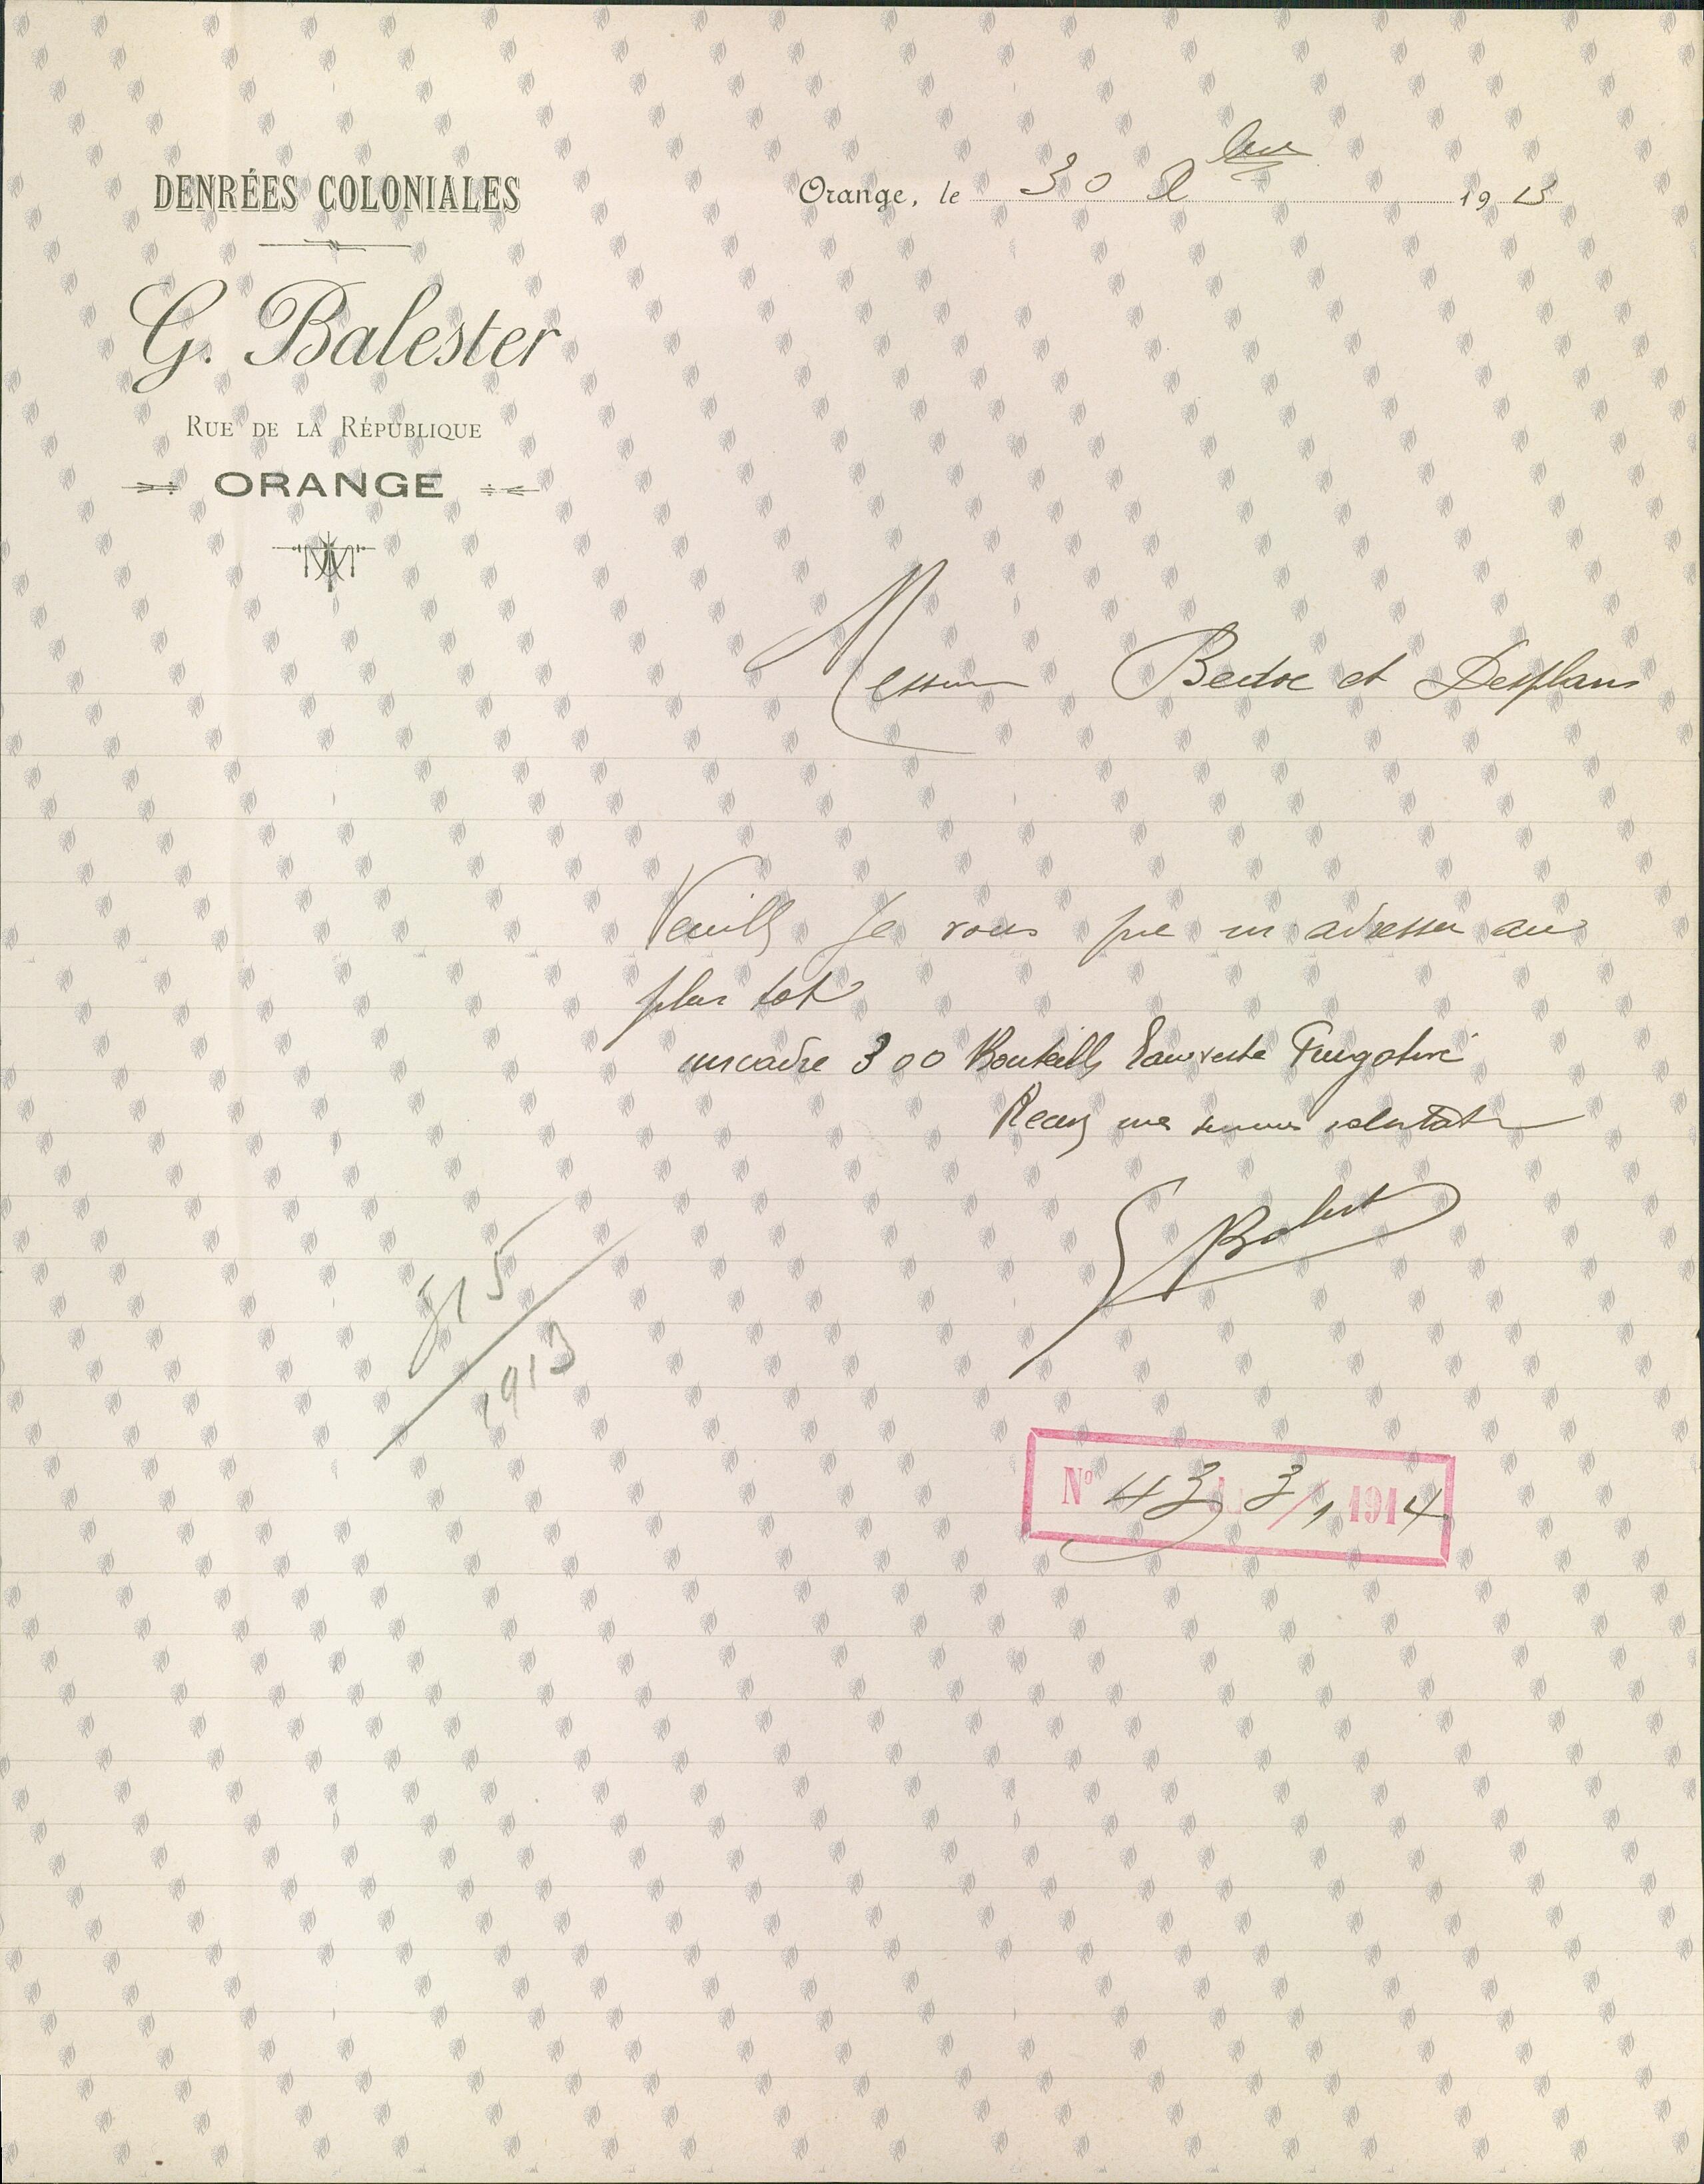 DENRÉES COLONIALES
Orange, le 30 Xbre 1913
G. Balester
RUE DE LA RÉPUBLIQUE
ORANGE
Messieurs Bedoc et Desplans
Veuillez je vous prie m adresser au
plus tot
un cadre 300 Bouteilles Eau verte Purgative
Recevez mes sinceres salutations
G Balest
515
1913
N° 43 3/1 1914